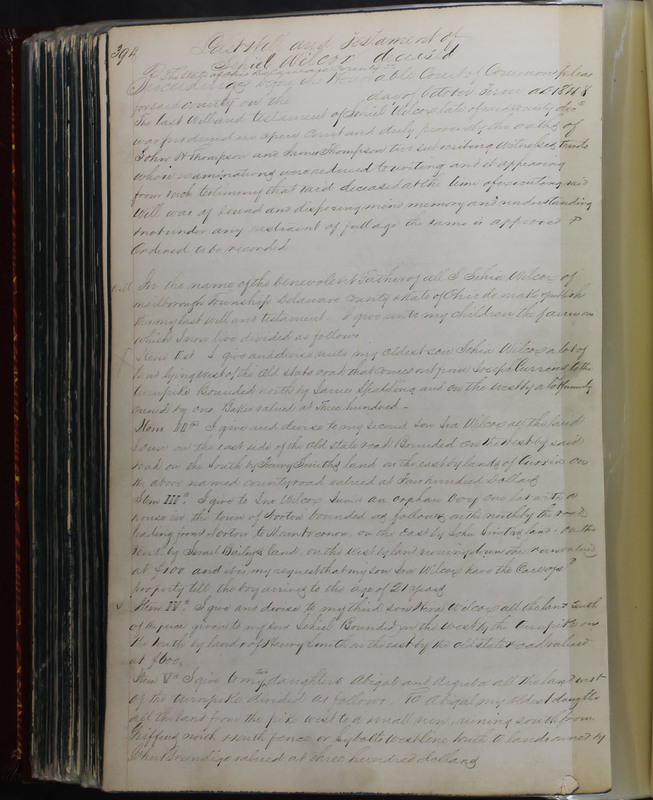 394
Last Will and Testament of
Jehiel Wilcox deceased
The State of Ohio Delaware County SS
Proceedings before the Honorable Court of Common pleas
for said County on the day of October Term AD 1848
The last Will and Testament of Jehiel Wilcox late of said County decd
was produced in open Court and duly proven by the oaths of
John H Thompson and James Thompson two subscribing Witnesses thereto
whose examinations were reduced to writing and it appearing
from such testimony that said deceased at the time of executing said
Will was of sound and disposing mind memory and understanding
& not under any restraint of full age the same is approved &
Ordered to be recorded
Will In the name of the benevolent Father of all I Jehiel Wilcox of
Marlborough township Delaware County & State of Ohio do make & publish
this my last will and testament. I give unto my children the farm on
which I now live divided as follows
Item 1st I give and devise unto my oldest son Jehiel Wilcox a lot of
land lying West of the Old State road that comes out from Joseph Currens to the
turnpike Bounded north by James Spalding and on the west by a lot formerly
owned by one Baker valued at Three hundred –
Item IInd I give and devise to my second Son Ira Wilcox all the land
I own on the east side of the Old State road Bounded on the West by said
road on the South by Henry Smiths land on the east by lands of on
the above named County road valued at Four hundred Dollars
Item IIIrd I give to Ira Wilcox an orphan boy one lot with a
house in the town of Norton bounded as follows on the north by the road
leading from Norton to on the East by John land on the
South by Israel Bailys land on the West by land valued
at $100 and it is my request that my son Ira Wilcox have the Care of sd
property till the boy arrives to the age of 21 years
Item IVth I give and devise to my third son Hira Wilcox all the land South
of the piece given to my son Jehiel Bounded on the West by the turnpike on
the South by lands of Henry Smith on the east by the old state road valued
at $600
Item Vth I give to my two daughters Abigal and all the land west
of the turnpike divided as follows. To Abigal my oldest daughter
all the land from the pike west to a small run, running south from
Griffins north & south fence or west line south to lands owned by
John Brundige valued at three hundred dollars